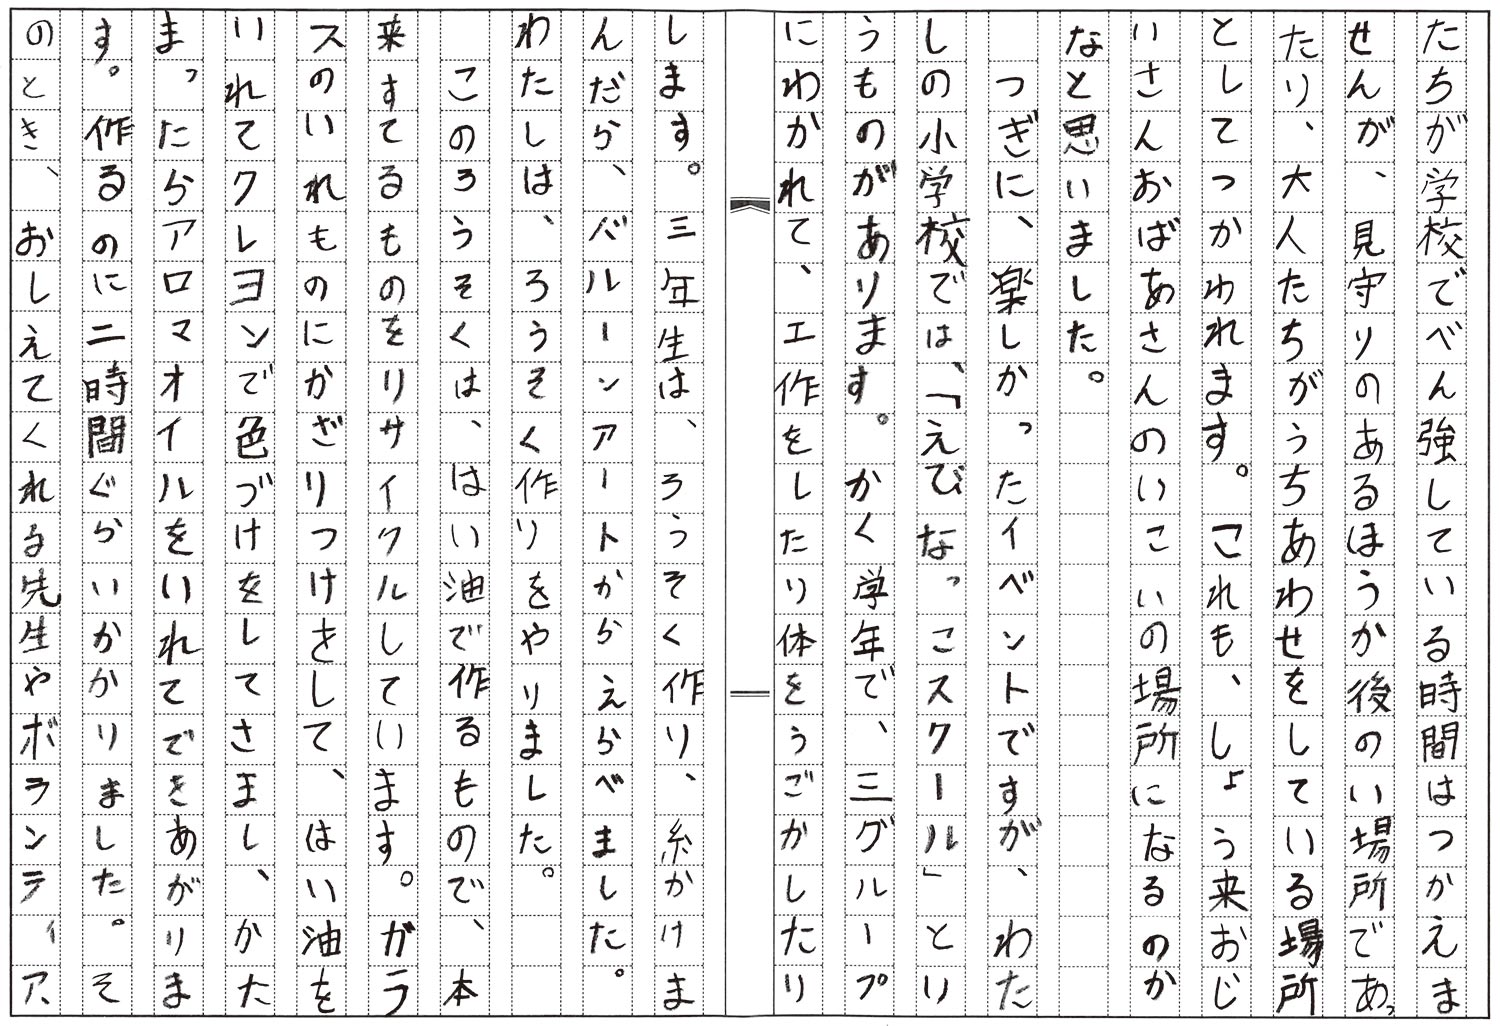 たちが学校でべん強している時間はつかえま
せんが、見守りのあるほうか後のい場所であっ
たり、大人たちがうちあわせをしている場所
としてつかわれます。これも、しょう来おじ
いさんおばあさんのいこいの場所になるのか
なと思いました。
つぎに、楽しかったイベントですが、わた
しの小学校では、「えびなっこスクール」とい
うものがあります。かく学年で、三グループ
にわかれて、工作をしたり体をうごかしたり
します。三年生は、ろうそく作り、糸かけま
んだら、バルーンアートからえらべました。
わたしは、ろうそく作りをやりました。
このろうそくは、はい油で作るもので、本
来すてるものをリサイクルしています。ガラ
スのいれものにかざりつけをして、はい油を
いれてクレヨンで色づけをしてさまし、かた
まったらアロマオイルをいれてできあがりま
す。作るのに二時間ぐらいかかりました。そ
のとき、おしえてくれる先生やボランティア、